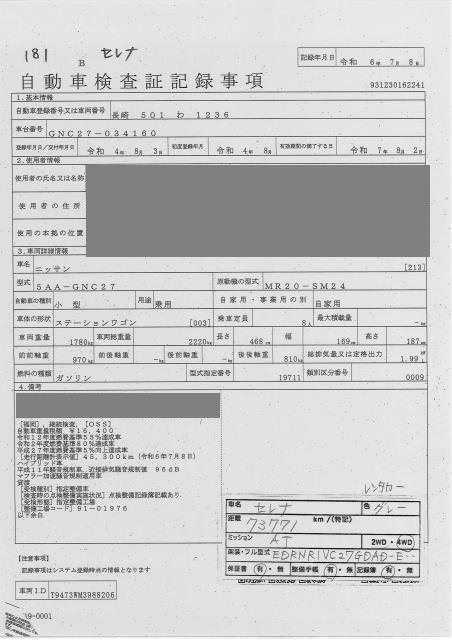 181 B セレナ
記録年月日 令和 6年 7月 8日
自動車検査証記録事項
931230162241
1.基本情報
自動車登録番号又は車両番号 長崎 501 わ 1236
車台番号 GNC27-034160
登録年月日/交付年月日 令和 4年 8月 3日 初度登録年月 令和 4年 8月 有効期間の満了する日 令和 7年 8月 2日
2.使用者情報
使用者の氏名又は名称
使用者の住所
使用の本拠の位置
3.車両詳細情報
車名 ニッサン [213]
型式 5AA-GNC27 原動機の型式 MR20-SM24
自動車の種別 小型 用途 乗用 自家用・事業用の別 自家用
車体の形状 ステーションワゴン [003] 乗車定員 8人 最大積載量 -kg
車両重量 1780kg 車両総重量 2220kg 長さ 468cm 幅 169cm 高さ 187cm
前前軸重 970kg 前後軸重 -kg 後前軸重 -kg 後後軸重 810kg 総排気量又は定格出力 1.99L
燃料の種類 ガソリン 型式指定番号 19711 類別区分番号 0009
4.備考
[福岡],継続検査,[OSS]
自動車重量税額 ¥16,400
令和12年度燃費基準55%達成車
令和2年度燃費基準80%達成車
平成27年度燃費基準5%向上達成車
[走行距離計表示値] 45,300km (令和6年7月8日)
ハイブリッド車
平成11年騒音規制車,近接排気騒音規制値 96dB
マフラー加速騒音規制適用車
貸渡
[受検種別]指定整備車
[検査時の点検整備実施状況]点検整備記録簿記載あり
[受検形態]指定整備工場
[整備工場コード]91-01976
以下余白
レンタカー
車名 セレナ 色 グレー
距離 73771 km/(特記)
ミッション AT 2WD・4WD
架装・フル型式 EDRNRIVC27GDAD-E-
保証書 有・無 整備手帳 有・無 記録簿 有・無
【注意事項】
記録事項はシステム登録時点の情報となります
車両ID T9473WM3988206
-0001